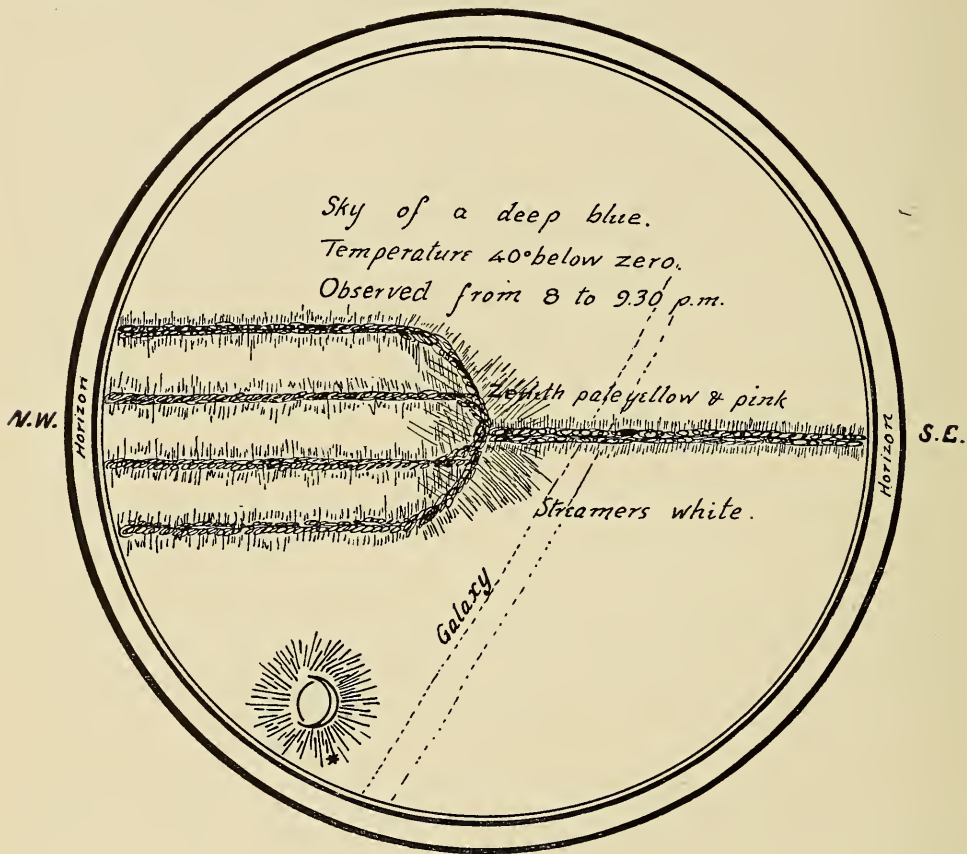 Sky of a deep blue.
Temperature 40° below zero.
Observed from 8 to 9.30 p.m.
Zenith pale yellow & pink
N.W.
Horizon
Horizon
S.E.
Streamers white.
Galaxy